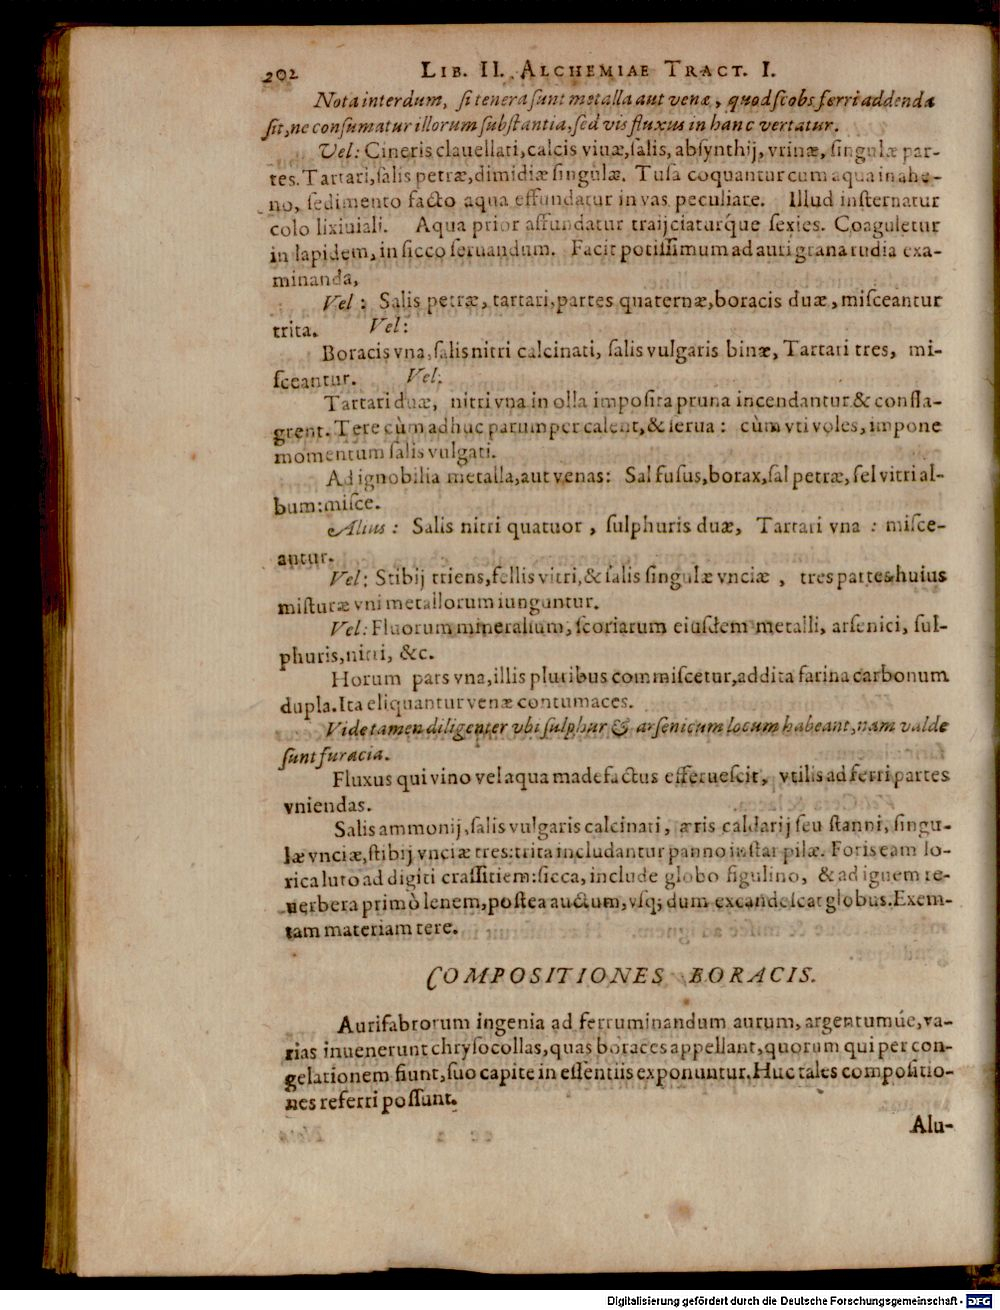 202 LIB. II. ALCHEMIAE TRACT. I.
Nota interdum, si tenera sunt metalla aut venæ, quod scobs ferri addenda
sit, ne consumatur illorum substantia, sed vis fluxus in hanc vertatur.
Vel: Cineris clauellati, calcis viuæ, salis, absynthij, vrinæ, singulæ par-
tes. Tartari, salis petræ, dimidiæ singulæ. Tusa coquantur cum aqua in ahe-
no, sedimento facto aqua effundatur in vas peculiare. Illud insternatur
colo lixiuiali. Aqua prior affundatur traijciaturq́ue sexies. Coaguletur
in lapidem, in sicco seruandum. Facit potissimum ad auri grana rudia exa-
minanda,
Vel: Salis petræ, tartari, partes quaternæ, boracis duæ, misceantur
trita. Vel:
Boracis vna, salis nitri calcinati, salis vulgaris binæ, Tartari tres, mi-
sceantur. Vel.
Tartari duæ, nitri vna in olla imposita pruna incendantur & confla-
grent. Tere cùm adhuc parumper calent, & serua: cùm vti voles, impone
momentum salis vulgati.
Ad ignobilia metalla, aut venas: Sal fusus, borax, sal petræ, fel vitri al-
bum: misce.
Alius: Salis nitri quatuor, sulphuris duæ, Tartari vna: misce-
antur.
Vel: Stibij triens, fellis vitri, & salis singulæ vnciæ, tres partes huius
misturæ vni metallorum iunguntur.
Vel: Fluorum mineralium, scoriarum eiusdem metalli, arsenici, sul-
phuris, nitri, &c.
Horum pars vna, illis pluribus commiscetur, addita farina carbonum
dupla. Ita eliquantur venæ contumaces.
Vide tamen diligenter vbi sulphur & arsenicum locum habeant, nam valde
sunt furacia.
Fluxus qui vino vel aqua madefactus efferuescit, vtilis ad ferri partes
vniendas.
Salis ammonij, salis vulgaris calcinati, æris caldarij seu stanni, singu-
læ vnciæ, stibij vnciæ tres: trita includantur panno instar pilæ. Foris eam lo-
rica luto ad digiti crassitiem: sicca, include globo figulino, & ad ignem re-
uerbera primò lenem, postea auctum, vsq; dum excandescat globus. Exem-
tam materiam tere.
COMPOSITIONES BORACIS.
Aurifabrorum ingenia ad ferruminandum aurum, argentumúe, va-
rias inuenerunt chrysocollas, quas boraces appellant, quorum qui per con-
gelationem fiunt, suo capite in essentiis exponuntur. Huc tales compositio-
nes referri possunt.
Alu-
Digitalisierung gefördert durch die Deutsche Forschungsgemeinschaft - DFG